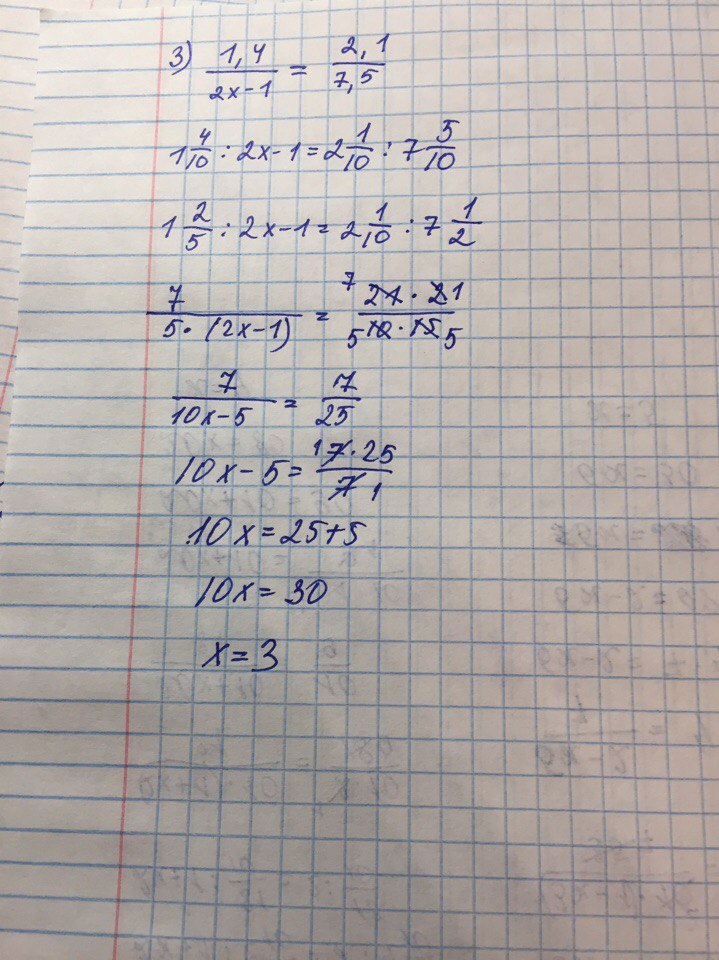 3) 1,4/(2x-1) = 2,1/7,5
1 4/10 : 2x-1 = 2 1/10 : 7 5/10
1 2/5 : 2x-1 = 2 1/10 : 7 1/2
7/(5·(2x-1)) = 7 21·21/5 10·15 5
7/(10x-5) = 7/25
10x-5 = 1 7·25/7 1
10x = 25+5
10x = 30
x = 3